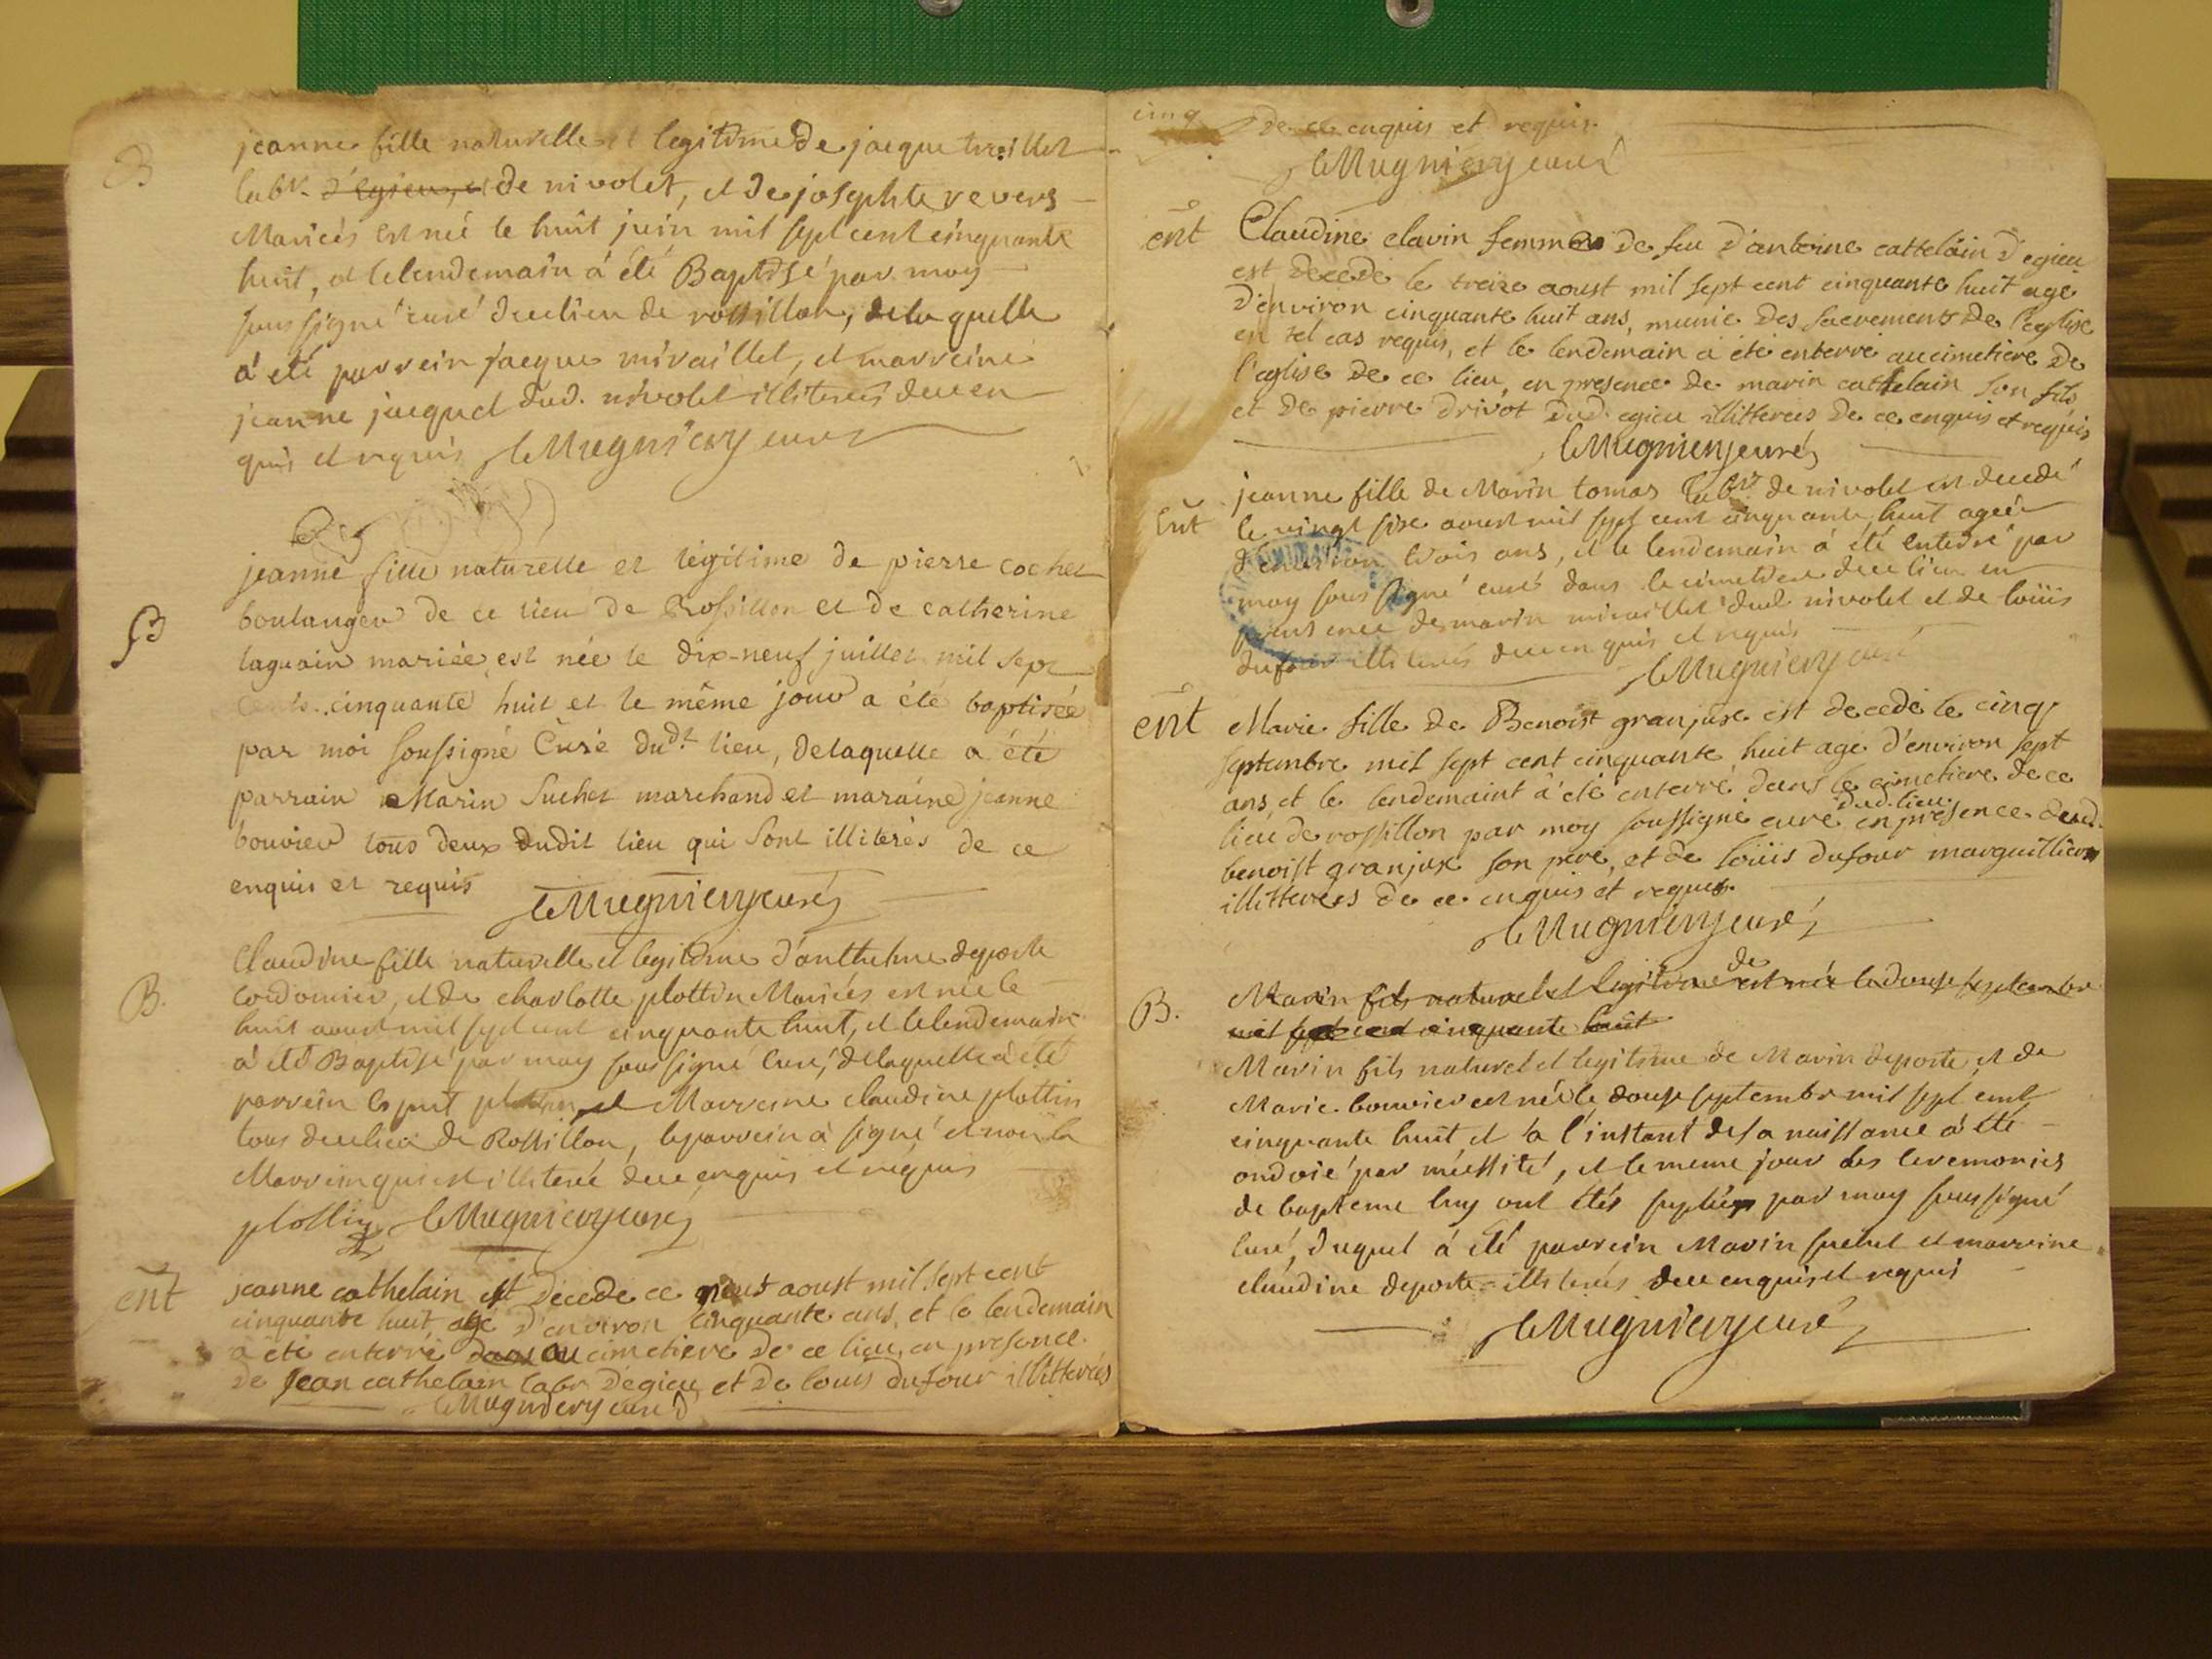 B
jeanne fille naturelle et legitime de jacque
labr. d'egieu, et de nivolet, et de josephte revers
Mariés est née le huit juin mil sept cent cinquante
huit, et le lendemain à été Baptisé par moy
soussigné curé de ce lieu de rossillon, de laquelle
à été parrein jacque miraillet, et marreine
jeanne jacquet dud. nivolet illiterés de ce en
quis et requis leMugnier curé
jeanne fille naturelle et légitime de pierre cochet
B
boulanger de ce lieu de Rossillon et de catherine
laguain mariée, est née le dix-neuf juillet mil sept
cents cinquante huit et le même jour a été baptisée
par moi soussigné Curé dudt lieu, delaquelle a été
parrain Marin Suchet marchand et maraine jeanne
bouvier tous deux dudit lieu qui sont illiterés de ce
enquis et requis leMugnier curé
Claudine fille naturelle et legitime d'anthelme deporte
B.
cordonnier, et de charlotte plottin Mariés est née le
huit aoust mil sept cent cinquante huit, et le lendemain
à été Baptisé par moy soussigné curé, delaquelle à été
parrein esprit plottin, et Marreine claudine plottin
tous de ce lieu de Rossillon, le parrein à signé et non la
Marreine qui est illiterée de ce enquis et requis
plottin leMugnier curé
ent
jeanne cathelain est decede ce neuf aoust mil sept cent
cinquante huit, age d'environ cinquante ans, et le lendemain
a eté enterré dans au cimetiere de ce lieu, en presence
de jean cathelain labr d'egieu et de louis dufour illitterés
leMugnier curé
cinq
de ce enquis et requis.
leMugnier curé
ent
Claudine clavin femme de feu d'antoine cattelain d'egieu
est decede le treize aoust mil sept cent cinquante huit age
d'environ cinquante huit ans, munie des sacrements de l'eglise
en tel cas requis, et le lendemain a été enterré au cimetiere de
l'eglise de ce lieu, en presence de marin cathelain son fils
et de pierre drivot dud. egieu illitterées de ce enquis et requis
leMugnier curé
jeanne fille de Marin tomas labr. de nivolet est decedé
ent
le vingt six aoust mil sept cent cinquante huit agée
d'environ trois ans, et le lendemain à été enterré par
moy soussigné curé dans le cimetiere de ce lieu en
presence de marin miraillet dud. nivolet et de loüis
dufour illiterés de ce enquis et requis
leMugnier curé
ent
Marie fille de Benoist granjux est decedé le cinq
septembre mil sept cent cinquante huit age d'environ sept
ans et le lendemaint à été enterré dans le cimetiere de ce
lieu de rossillon par moy soussigné curé dud. lieu en presence dud.
benoist granjux son pere, et de loüis dufour marguillier
illitterées de ce enquis et requis.
leMugnier curé
B.
Marin fils naturel et legitime de est née le douze septembre
mil sept cent cinquante huit
Marin fils naturel et legitime de Marin deporte et de
Marie bouvier est née le douze septembre mil sept cent
cinquante huit et à l'instant de sa naissance à été
ondoié par nécessité, et le meme jour les ceremonies
de bapteme luy ont étés suplées par moy soussigné
curé, duquel à été parrein Marin suchet et marreine
claudine deporte illiterés de ce enquis et requis
leMugnier curé